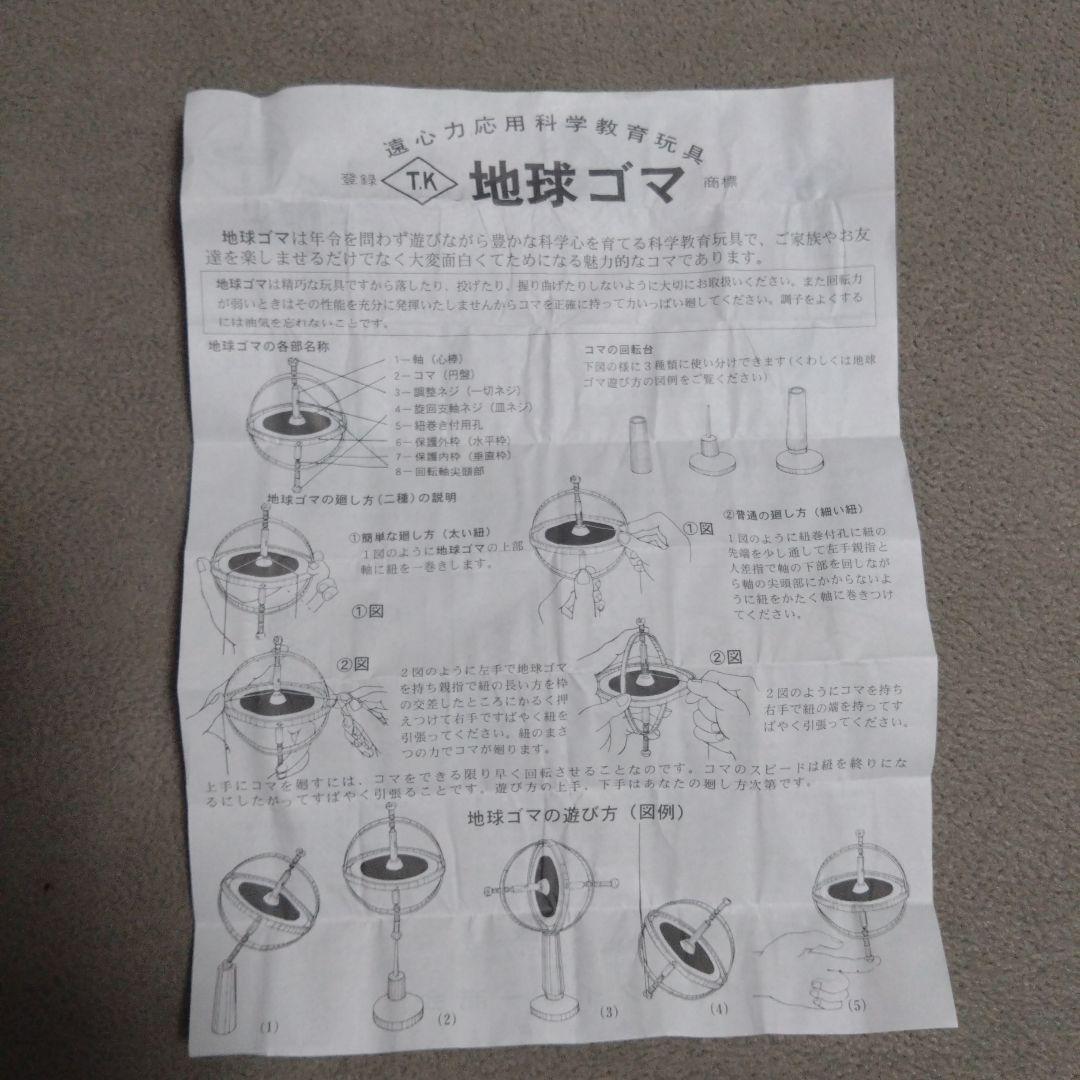 遠心力応用科学教育玩具
登録 T.K 地球ゴマ 商標
地球ゴマは年令を問わず遊びながら豊かな科学心を育てる科学教育玩具で、ご家族やお友
達を楽しませるだけでなく大変面白くてためになる魅力的なコマであります。
地球ゴマは精巧な玩具ですから落したり、投げたり、握り曲げたりしないように大切にお取扱いください。また回転力
が弱いときはその性能を充分に発揮いたしませんからコマを正確に持って力いっぱい廻してください。調子をよくする
には油気を忘れないことです。
地球ゴマの各部名称
1―軸（心棒）
2―コマ（円盤）
3―調整ネジ（一切ネジ）
4―旋回支軸ネジ（皿ネジ）
5―紐巻き付用孔
6―保護外枠（水平枠）
7―保護内枠（垂直枠）
8―回転軸尖頭部
コマの回転台
下図の様に3種類に使い分けできます（くわしくは地球
ゴマ遊び方の図例をご覧ください）
地球ゴマの廻し方（二種）の説明
①簡単な廻し方（太い紐）
1図のように地球ゴマの上部
軸に紐を一巻きします。
①図
②図
2図のように左手で地球ゴマ
を持ち親指で紐の長い方を枠
の交差したところにかるく押
えつけて右手ですばやく紐を
引張ってください。紐のまさ
つの力でコマが廻ります。
②普通の廻し方（細い紐）
①図
1図のように紐巻付孔に紐の
先端を少し通して左手親指と
人差指で軸の下部を回しなが
ら軸の尖頭部にかからないよ
うに紐をかたく軸に巻きつけ
てください。
②図
2図のようにコマを持ち
右手で紐の端を持ってす
ばやく引張ってください。
上手にコマを廻すには、コマをできる限り早く回転させることなのです。コマのスピードは紐を終りにな
るにしたがってすばやく引張ることです。遊び方の上手、下手はあなたの廻し方次第です。
地球ゴマの遊び方（図例）
(1)
(2)
(3)
(4)
(5)